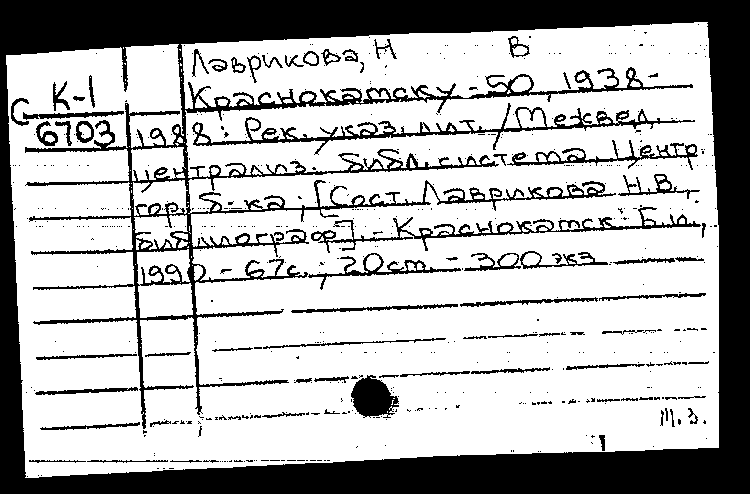 Лаврикова, Н В
К-1
С 6703
Краснокамску - 50, 1938-
1988: Рек. указ. лит. / Межвед.
централиз. библ. система, Центр.
гор. б-ка ; [Сост. Лаврикова Н.В.,
библиограф]. - Краснокамск: Б.и.,
1990. - 67с. ; 20см. - 300 экз